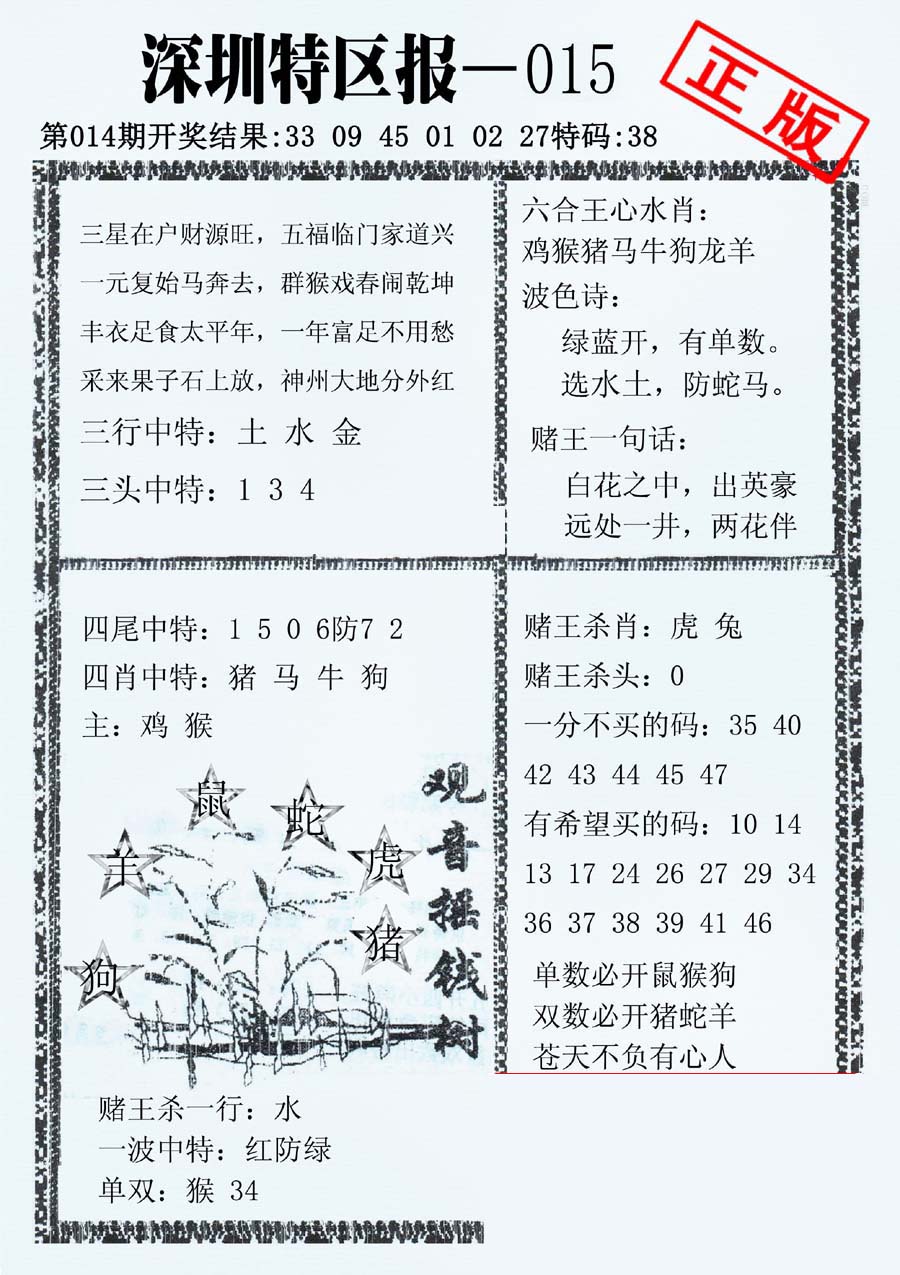 深圳特区报—015
正版
第014期开奖结果:33 09 45 01 02 27特码:38
三星在户财源旺，五福临门家道兴
一元复始马奔去，群猴戏春闹乾坤
丰衣足食太平年，一年富足不用愁
采来果子石上放，神州大地分外红
三行中特：土 水 金
三头中特：1 3 4
六合王心水肖：
鸡猴猪马牛狗龙羊
波色诗：
绿蓝开，有单数。
选水土，防蛇马。
赌王一句话：
白花之中，出英豪
远处一井，两花伴
四尾中特：1 5 0 6防7 2
四肖中特：猪 马 牛 狗
主：鸡 猴
鼠
蛇
羊
虎
猪
狗
观音摇钱树
赌王杀一行：水
一波中特：红防绿
单双：猴 34
赌王杀肖：虎 兔
赌王杀头：0
一分不买的码：35 40
42 43 44 45 47
有希望买的码：10 14
13 17 24 26 27 29 34
36 37 38 39 41 46
单数必开鼠猴狗
双数必开猪蛇羊
苍天不负有心人